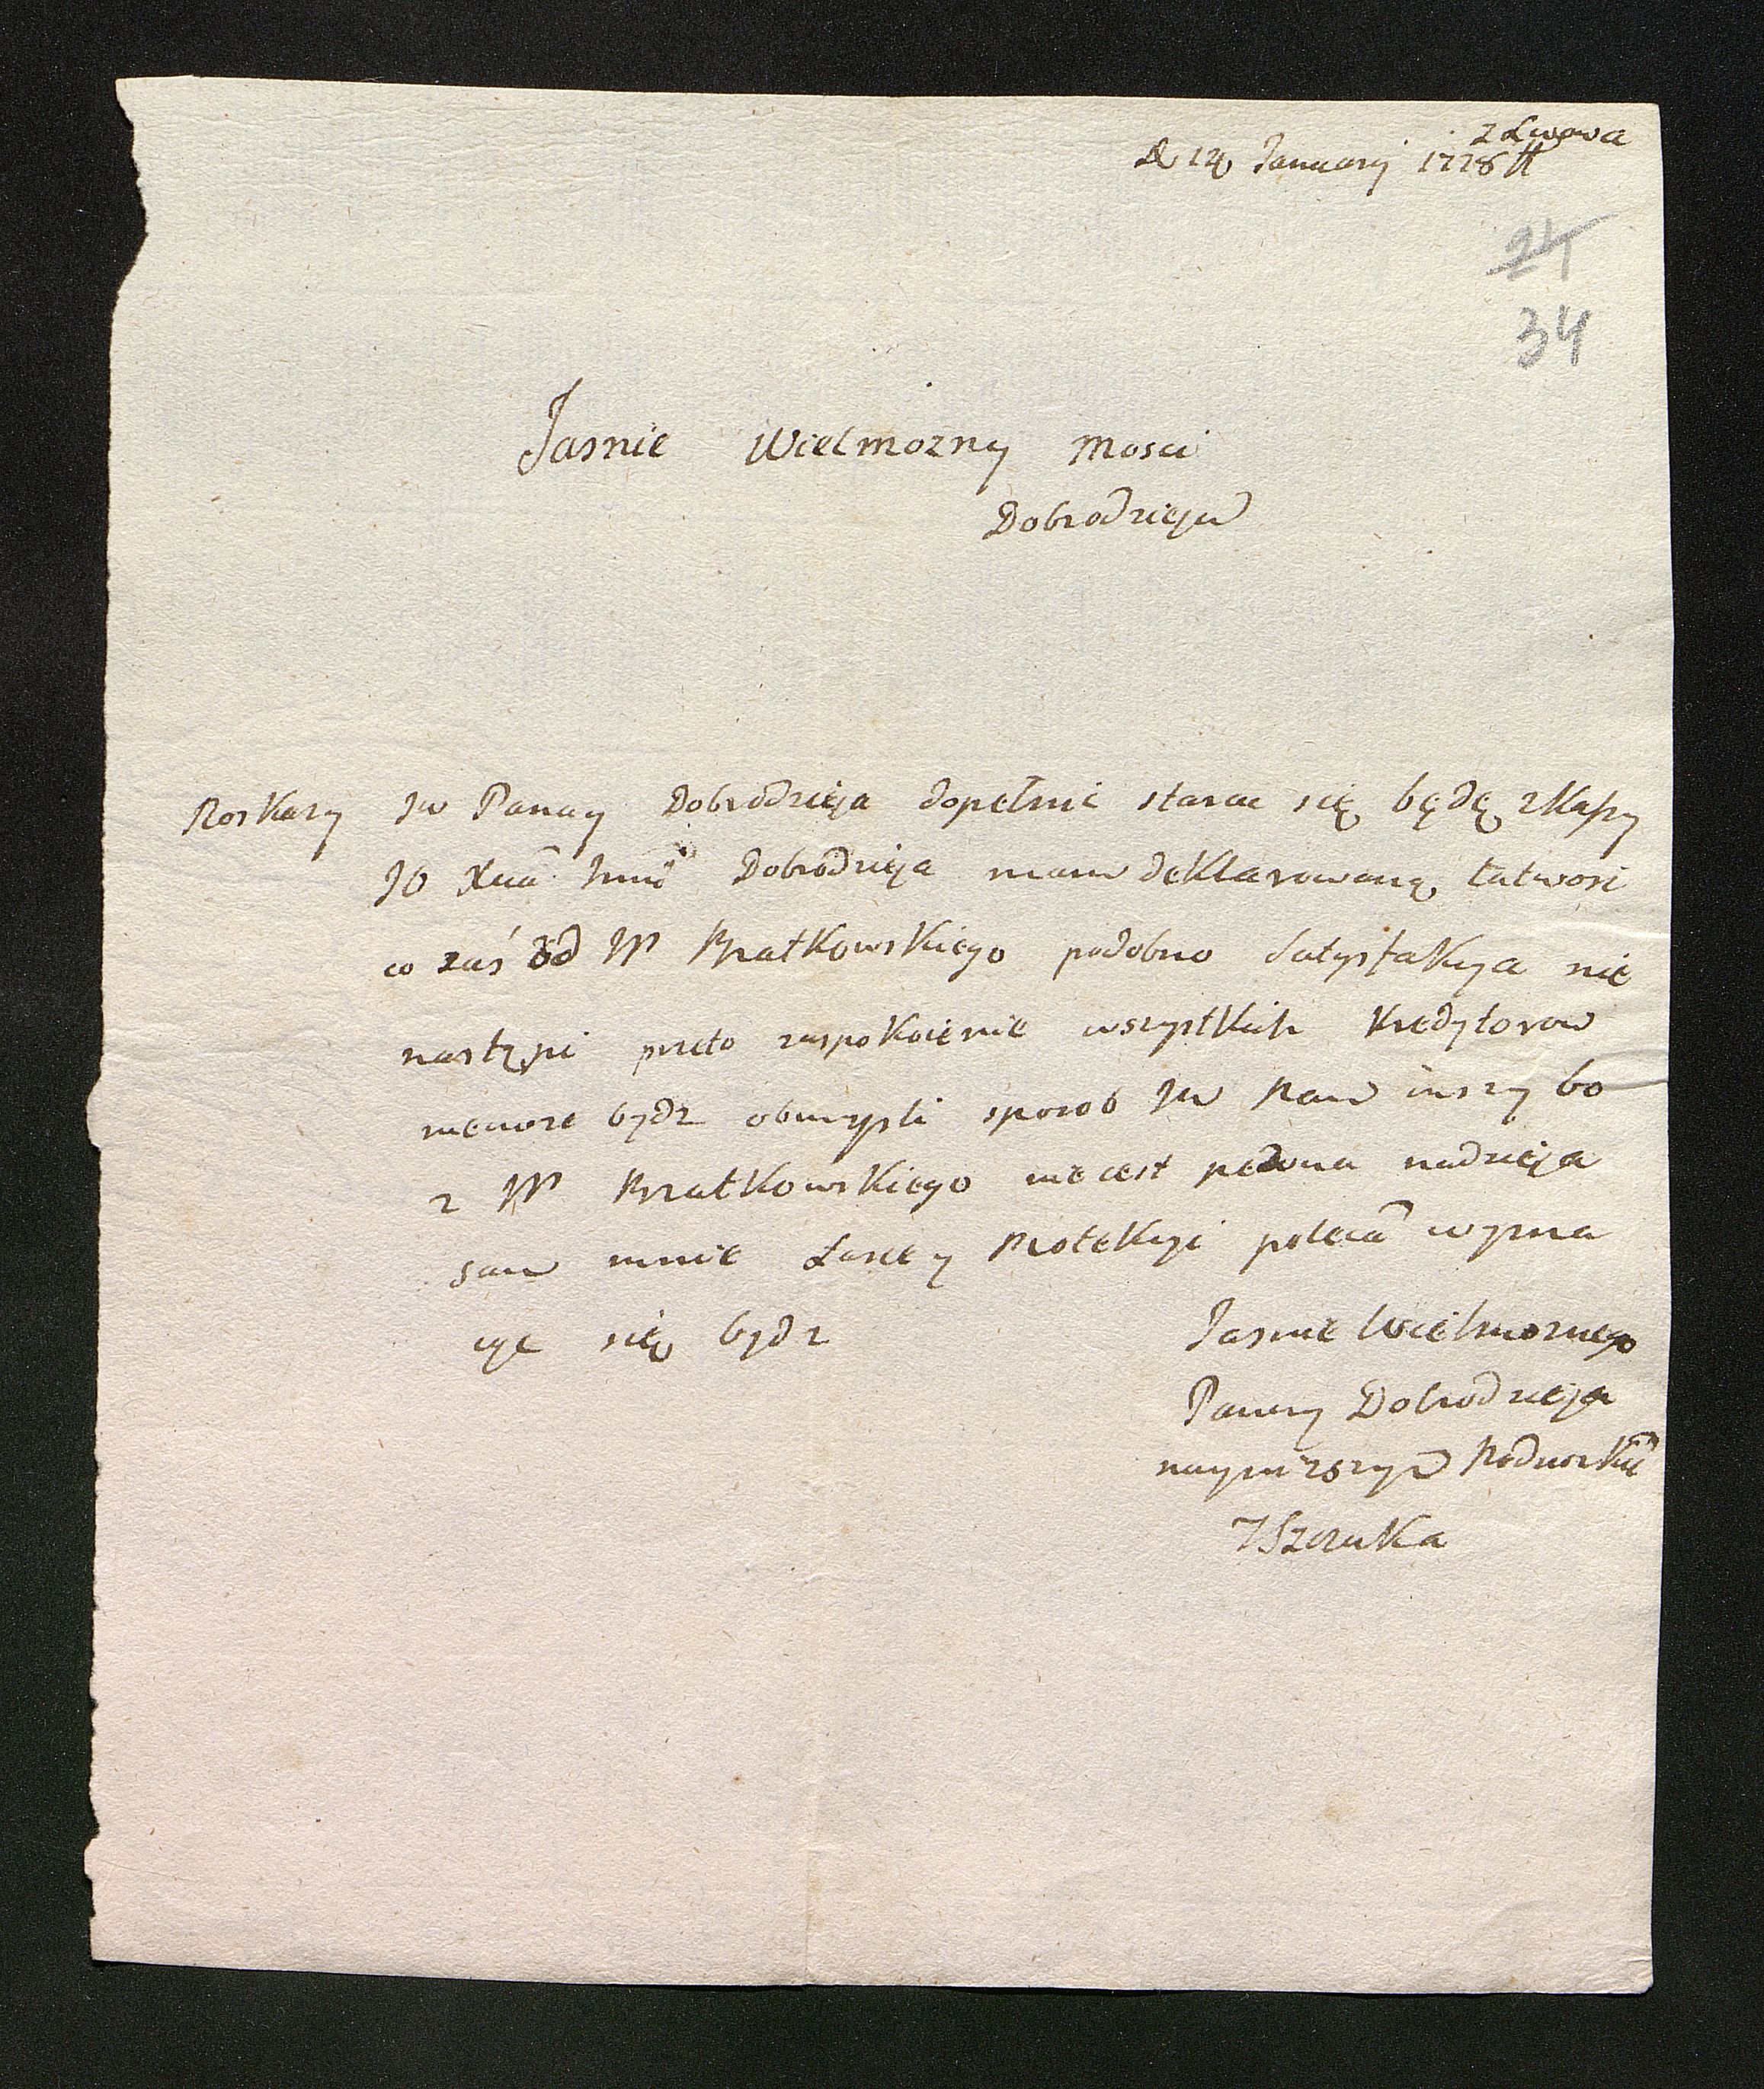 z Lwowa
D 14 January 1778 #
24
34
Jasnie Wielmozny Mosci
Dobrodzieju
Roskazy JW Panay Dobrodzieja dopełnić starac się będę z Kassy
JO Xcia Jmci Dobrodzieja mam deklarowaną łatwosc
co zaś od JP Bratkowskiego podobno Satysfakcya nie
nastąpi przeto zaspokoienie wszystkich Kredytorow
niemoze bydz obmysli sposob JW Pan inszy bo
z JP Bratkowskiego nie iest pewna nadzieja
sam mnie Łascey Protekcyi poleca wyzna
ięc się bydz
Jasnie Wielmoznego
Panay Dobrodzieja
nayniższym Podnozkie
J Szczuka